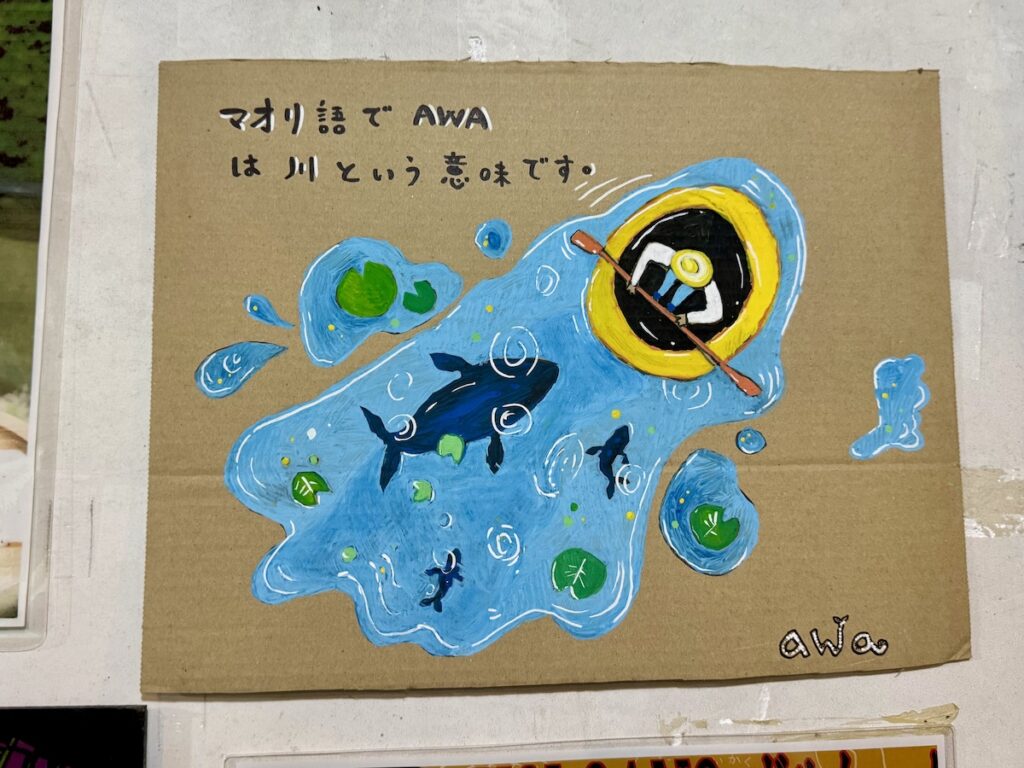 マオリ語で AWA
は 川 という 意味です。
awa